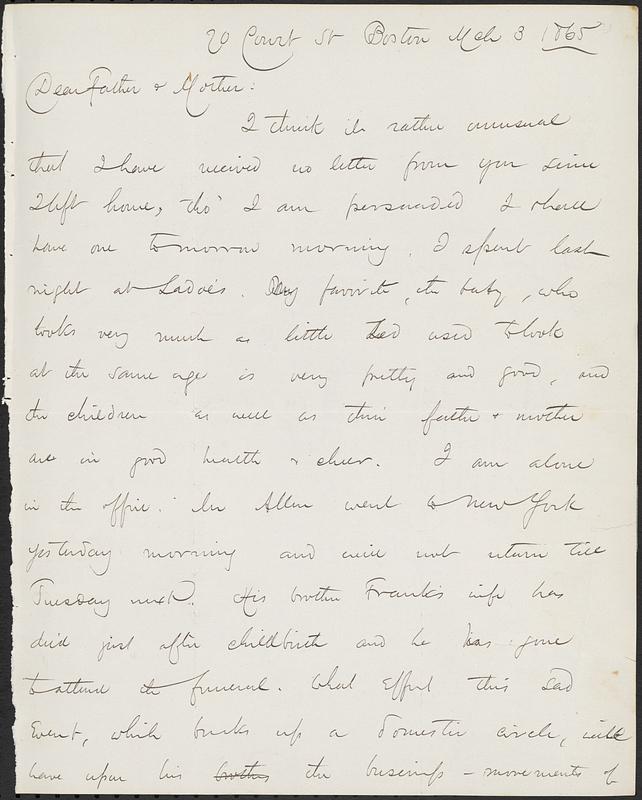 20 Court St Boston Mch 3 1865
Dear Father & Mother:
I think it rather unusual
that I have received no letter from you since
I left home, tho' I am persuaded I shall
have one tomorrow morning. I spent last
night at Sadie's. My favorite, the baby, who
looks very much as little Ted used to look
at the same age is very pretty and good, and
the children as well as their father & mother
are in good health & cheer. I am alone
in the office. Mr Allen went to New York
yesterday morning and will not return till
Tuesday next. His brother Frank's wife has
died just after childbirth and he has gone
to attend the funeral. What effect this sad
event, which breaks up a domestic circle, will
have upon his brothers the business-movements of